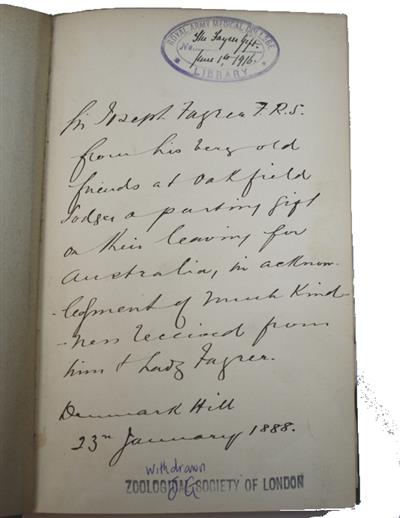 ROYAL ARMY MEDICAL COLLEGE
No. The Fayrer Gift.
June 1st 1916.
LIBRARY
Sir Joseph Fayrer F.R.S.
from his very old
friends at Oakfield
Lodge a parting gift
on their leaving for
Australia, in acknow-
-legment of much Kind
-ness received from
him & Lady Fayrer.
Denmark Hill
23rd January 1888.
withdrawn
ZOOLOGICAL SOCIETY OF LONDON